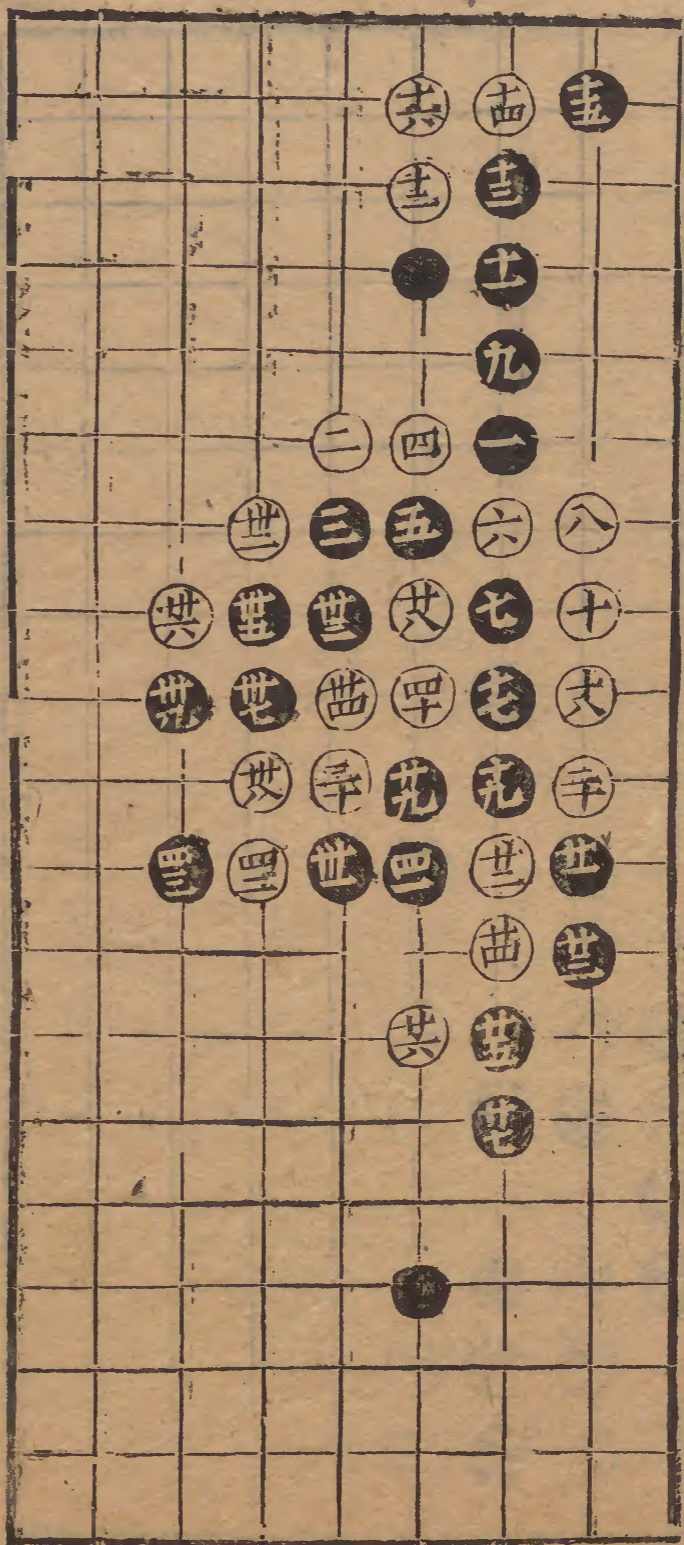 十六 十四 十五
十二 十三
十一
九
二 四 一
卅二 三 五 六 八
卅六 卅五 卅三 廿八 七 十
卅九 卅七 卅四 四十 十七 十八
卅八 三十 廿九 十九 二十
四十三 四十二 卅一 四十一 廿二 廿一
廿四 廿三
廿六 廿五
廿七